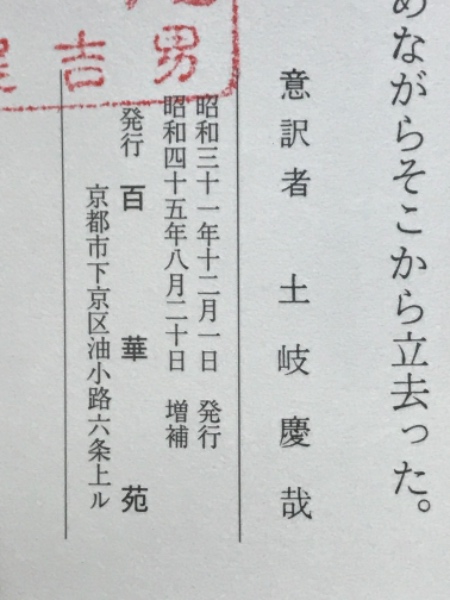 めながらそこから立去った。
意訳者 土岐慶哉
昭和三十一年十二月一日 発行
昭和四十五年八月二十日 増補
発行 百華苑
京都市下京区油小路六条上ル
男
吉